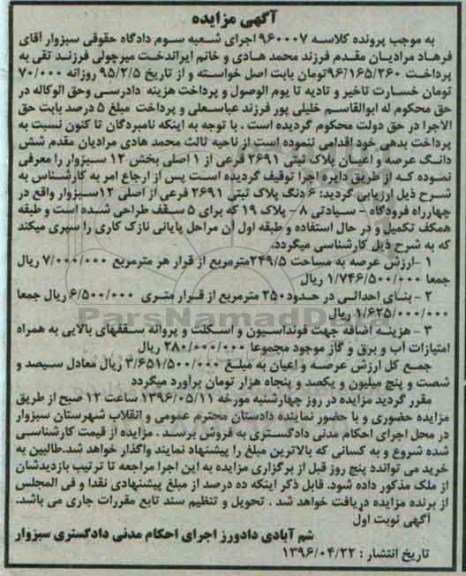 آگهی مزایده
به موجب پرونده کلاسه ۹۶۰۰۰۷ اجرای شعبه سوم دادگاه حقوقی سبزوار آقای
فرهاد مرادیان مقدم فرزند محمد هادی و خانم ایراندخت میرچولی فرزند تقی به
پرداخت ۹۶/۱۶۵/۲۶۰تومان بابت اصل خواسته و از تاریخ ۹۵/۲/۵ روزانه ۷۰/۰۰۰
تومان خسارت تاخیر و تادیه تا یوم الوصول و پرداخت هزینه دادرسی وحق الوکاله در
حق محکوم له ابوالقاسم خلیلی پور فرزند عباسعلی و پرداخت مبلغ ۵ درصد بابت حق
الاجرا در حق دولت محکوم گردیده است . با توجه به اینکه نامبردگان تا کنون نسبت به
پرداخت بدهی خود اقدامی ننموده است از ناحیه ثالث محمد هادی مرادیان مقدم شش
دانگ عرصه و اعیان پلاک ثبتی ۲۶۹۱ فرعی از ۱ اصلی بخش ۱۲ سبزوار را معرفی
نموده که از طریق دایره اجرا توقیف گردیده است پس از ارجاع امر به کارشناس به
شرح ذیل ارزیابی گردید: ۶دنگ پلاک ثبتی ۲۶۹۱ فرعی از اصلی ۱۲سبزوار واقع در
چهارراه فرودگاه - سیادتی ۸ - پلاک ۱۹ که برای ۵ سقف طراحی شده است و طبقه
همکف تکمیل و در حال استفاده و طبقه اول آن مراحل پایانی نازک کاری را سپری میکند
که به شرح ذیل کارشناسی میگردد.
۱ -ارزش عرصه به مساحت ۲۴۹/۵مترمربع از قرار هر مترمربع ۷/۰۰۰/۰۰۰ ریال
جمعا ۱/۷۴۶/۵۰۰/۰۰۰ ریال
۲ - بنای احداثی در حدود۲۵۰ مترمربع از قرار متری ۶/۵۰۰/۰۰۰ ریال جمعا
۱/۶۲۵/۰۰۰/۰۰۰ ریال
۳ - هزینه اضافه جهت فونداسیون و اسکلت و پروانه سقفهای بالایی به همراه
امتیازات آب و برق و گاز موجود مجموعا ۲۸۰/۰۰۰/۰۰۰ ریال
جمع کل ارزش عرصه و اعیان به مبلغ ۳/۶۵۱/۵۰۰/۰۰۰ ریال معادل سیصد و
شصت و پنج میلیون و یکصد و پنجاه هزار تومان برآورد میگردد
مقرر گردید مزایده در روز چهارشنبه مورخه ۱۳۹۶/۰۵/۱۱ ساعت ۱۲ صبح از طریق
مزایده حضوری و با حضور نماینده دادستان محترم عمومی و انقلاب شهرستان سبزوار
در محل اجرای احکام مدنی دادگستری به فروش برسد . مزایده از قیمت کارشناسی
شده شروع و به کسانی که بالاترین مبلغ را پیشنهاد نمایند واگذار خواهد شد.طالبین به
خرید می توانند پنج روز قبل از برگزاری مزایده به این اجرا مراجعه تا ترتیب بازدیدشان
از ملک مذکور داده شود. قابل ذکر اینکه ده درصد از مبلغ پیشنهادی نقدا و فی المجلس
از برنده مزایده دریافت خواهد شد . تحویل و تنظیم سند تابع مقررات جاری می باشد.
آگهی نوبت اول
شم آبادی دادورز اجرای احکام مدنی دادگستری سبزوار
تاریخ انتشار : ۱۳۹۶/۰۴/۲۲